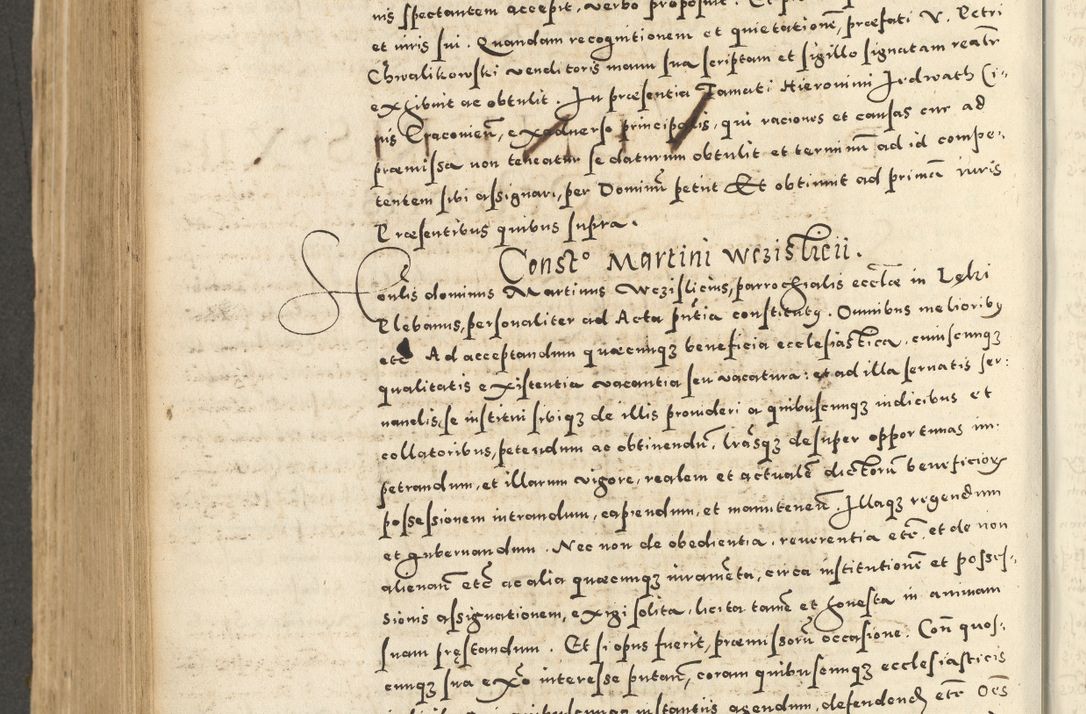 nis spectantem accepit, verbo proposuit.
et iuris sui. Quandam recognitionem et quietationem, præfati V. Petri
Chwalikowski venditoris manu sua scriptam et sigillo signatam realitr
exhibuit ac obtulit. In præsentia Famati Hieronimi Jrdwath Ci-
uis Cracovien̄, ex adverso principalis, qui raciones et causas cur ad
præmissa non teneatur se daturum obtulit et terminū ad id compe-
tentem sibi assignari, per Dominū petiit Et obtinuit ad primā iuris
Præsentibus quibus supra.
Consto Martini Wezislicii.
Honlis dominus Martinus Wezislicius, parrochialis ecctæ in Lęki
Plebanus, personaliter ad Acta pñtia constitutq. Omnibus melioribq
etc̄ Ad acceptandum quæcunqz beneficia ecclesiastica, cuiuscunqz
qualitatis existentia vacantia seu vacatura: et ad illa servatis ser:
uandis, se institui sibiqz de illis provideri a quibuscunqz iudicibus et
collatoribus, petendum ac obtinendū, lrasqz desuper opportunas im-
petrandum, et illarum vigore, realem et actualē dictorū beneficiorꝝ
possessionem intrandum, capiendum, et manutenen̄. Illaqz regendum
et gubernandum. Nec non de obedientia, reverentia etc̄, et de non
alienan̄ etc̄ ac alia quæcunqz iuramēta, circa institutionē et posses-
sionis assignationem, exigi solita, licita tamē et honesta in animam
suam pręstandum. Et si opus fuerit, præmissorū occasione. Con̄ quos-
cunqz sua exō interesse putan̄, coram quibuscunqz ecclesiasticis
quibuscunqz instantiis agendum, defendend etc̄ Oēs